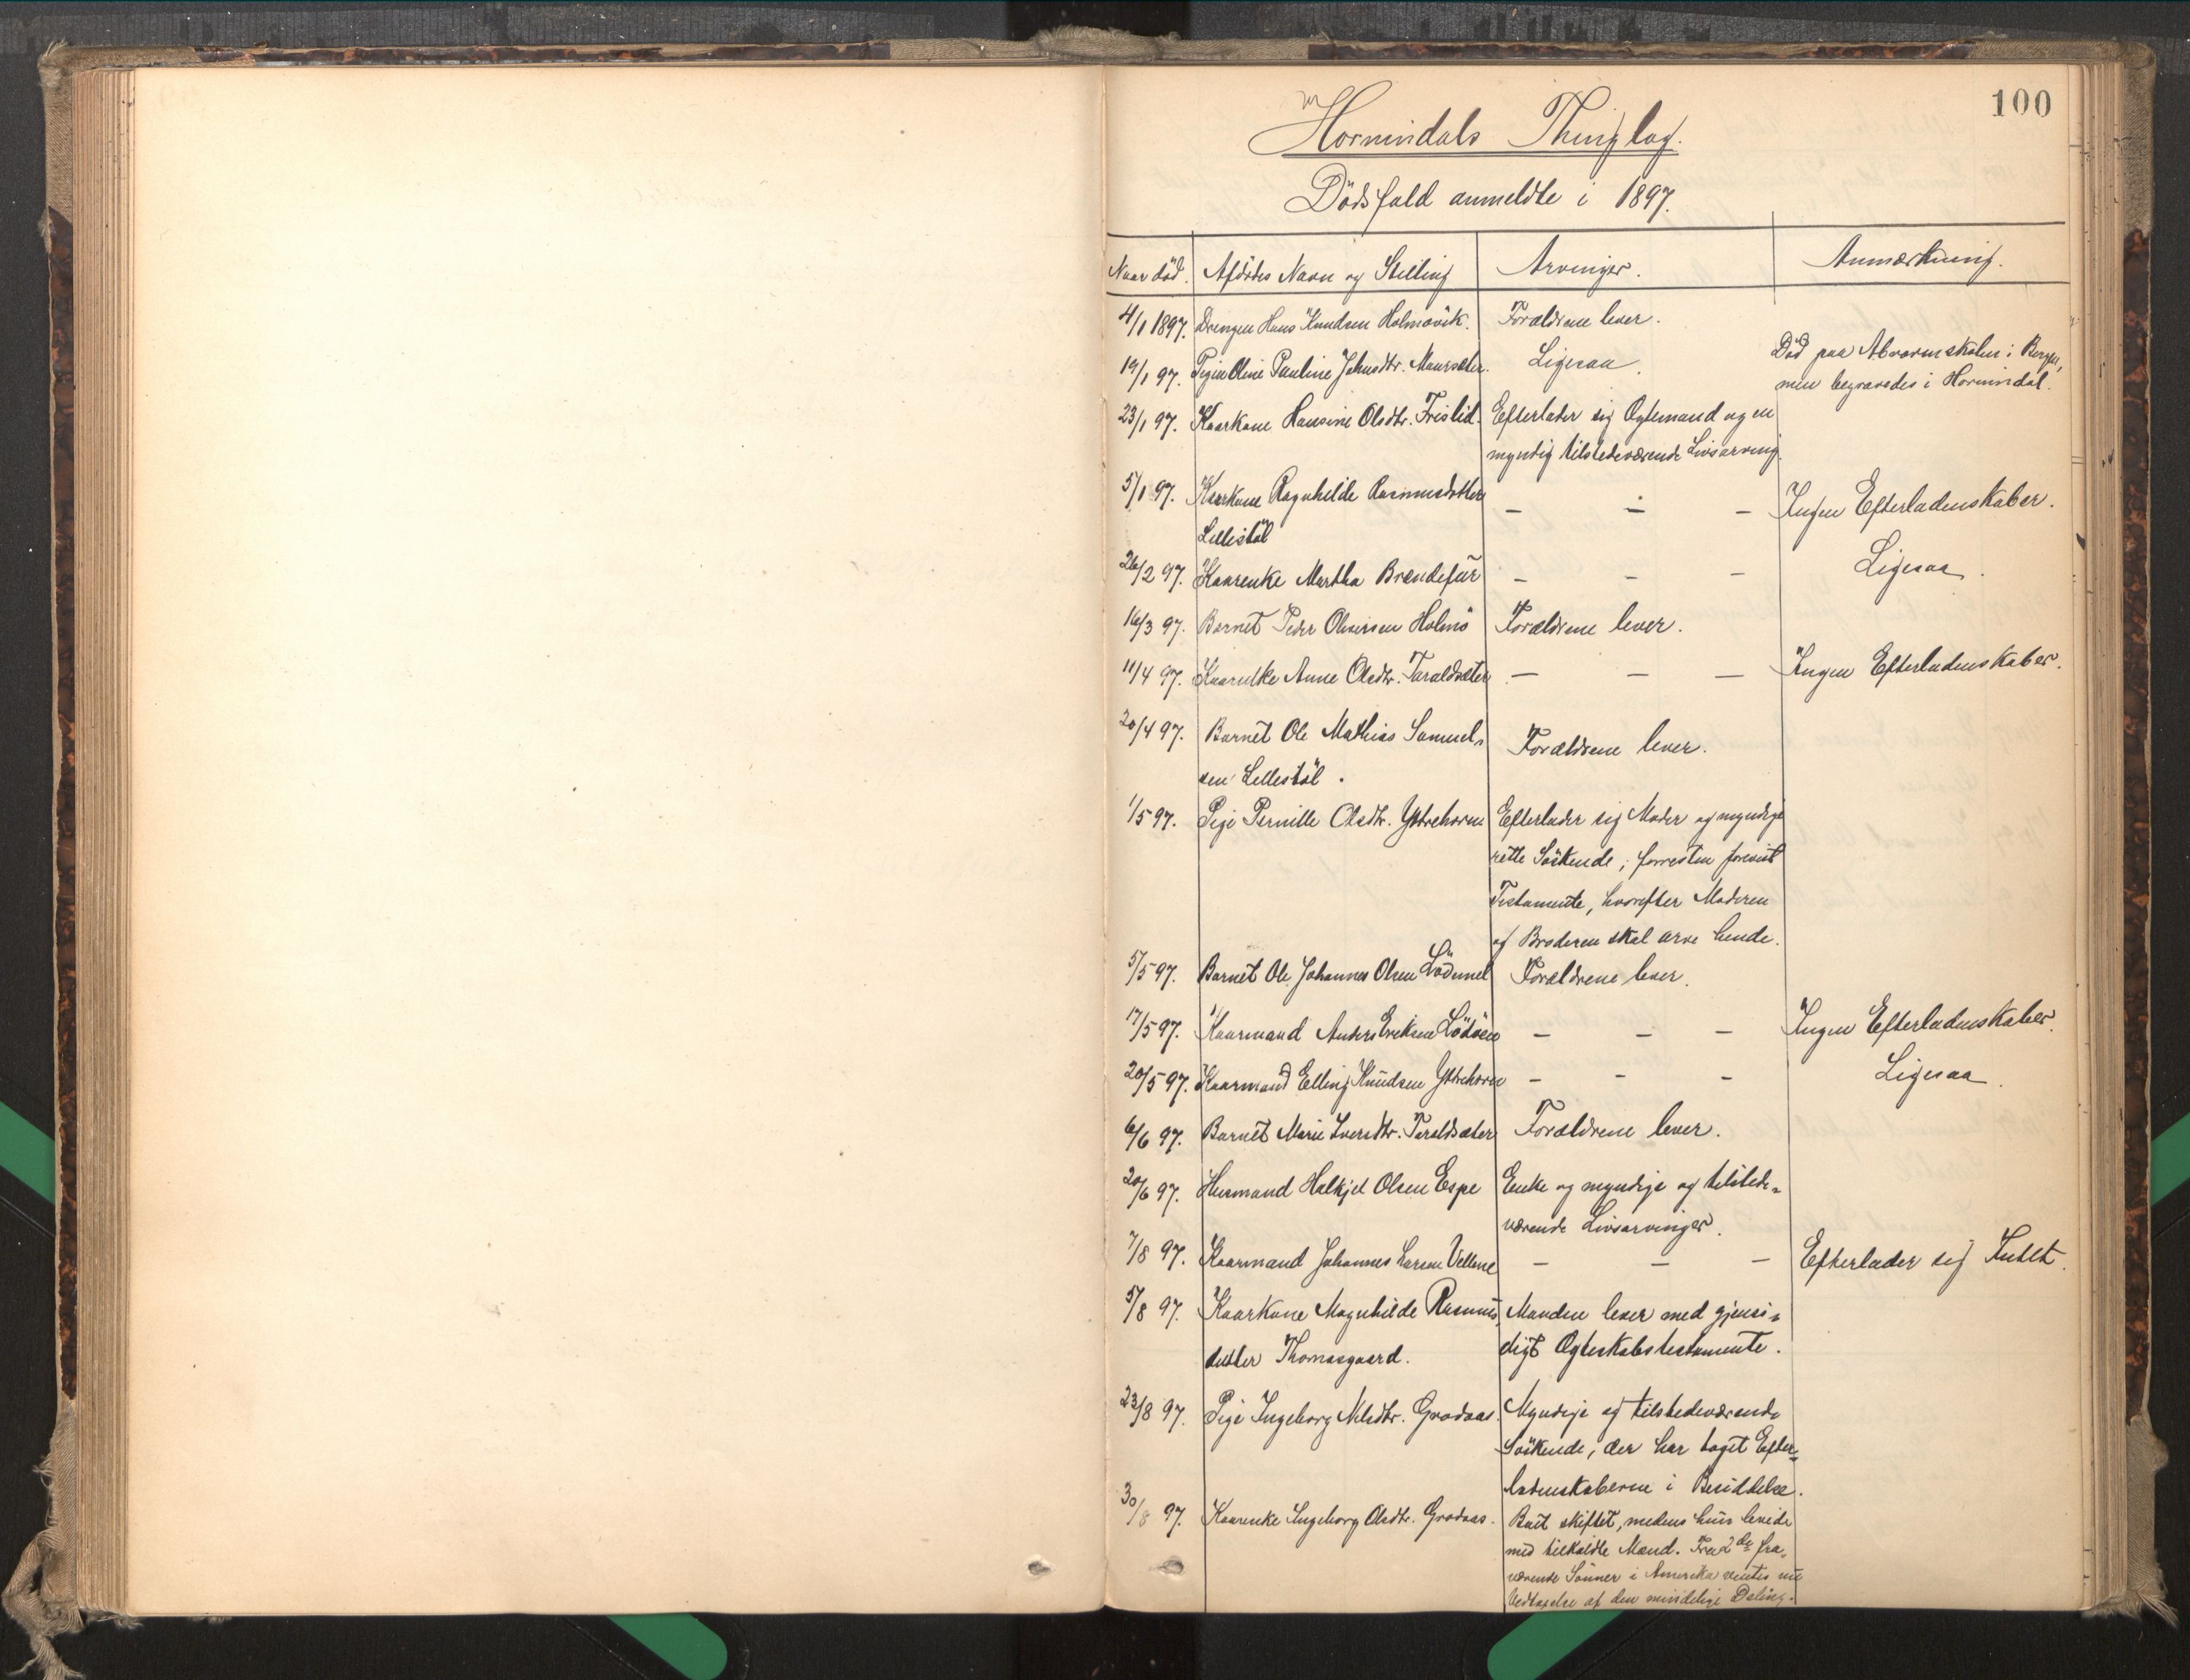 100
Hornindals Thinglag.
Dödsfald anmeldte i 1897.
Naar död. Afdödes Navn og Stilling Arvinger. Anmærkning.
4/1 1897. Drengen Hans Knudsen Holmövik. Forældrene lever.
19/1 97. Pigen Oline Pauline Johnsdtr. Maursæter. Ligesaa. Död paa Abnormskolen i Bergen,
men begravedes i Hornindal.
23/1 97. Kaarkone Hansine Olsdtr. Frislid. Efterlader sig Ægtemand og en
myndig tilstedeværende Livsarving.
5/1 97. Kaarkone Ragnhilde Rasmusdatter — — — Ingen Efterladenskaber.
Lillestöl
26/2 97. Kaarenke Martha Brændefur — — — Ligesaa.
16/3 97. Barnet Peder Oliversen Holmö Forældrene lever.
11/4 97. Kaarenke Anne Olsdtr. Taraldsæter — — — Ingen Efterladenskaber.
20/4 97. Barnet Ole Mathias Samuel-
sen Lillestöl. Forældrene lever.
1/5 97. Pige Pernille Olsdtr. Yttrehorn Efterlader sig Moder og myndige
rette Söskende; forresten forevist
Testamente, hvorefter Moderen
og Broderen skal arve hende.
5/5 97. Barnet Ole Johannes Olsen Lödemel Forældrene lever.
17/5 97. Kaarmand Anders Eriksen Lödöen — — — Ingen Efterladenskaber.
20/5 97. Kaarmand Elling Knudsen Yttrehorn — — — Ligesaa.
6/6 97. Barnet Marie Iversdtr. Taraldsæter Forældrene lever.
20/6 97. Husmand Halkjel Olsen Espe Enke og myndige og tilstede-
værende Livsarvinger.
7/8 97. Kaarmand Johannes Larsen Vellene — — — Efterlader sig Intet.
5/8 97. Kaarkone Magnhilde Rasmus- Manden lever med gjensi-
datter Thomasgaard. digt Ægteskabstestamente.
23/8 97. Pige Ingeborg Nilsdtr. Grodaas. Myndige og tilstedeværende
Söskende, der har taget Efter-
ladenskaberne i Besiddelse.
30/8 97. Kaarenke Ingeborg Olsdtr. Grodaas. Boet skiftet, medens hun levede
med tilkaldte Mænd. Fra 2de fra-
værende Sönner i Amerika ventes nu
Vedtagelse af den mindelige Deling.